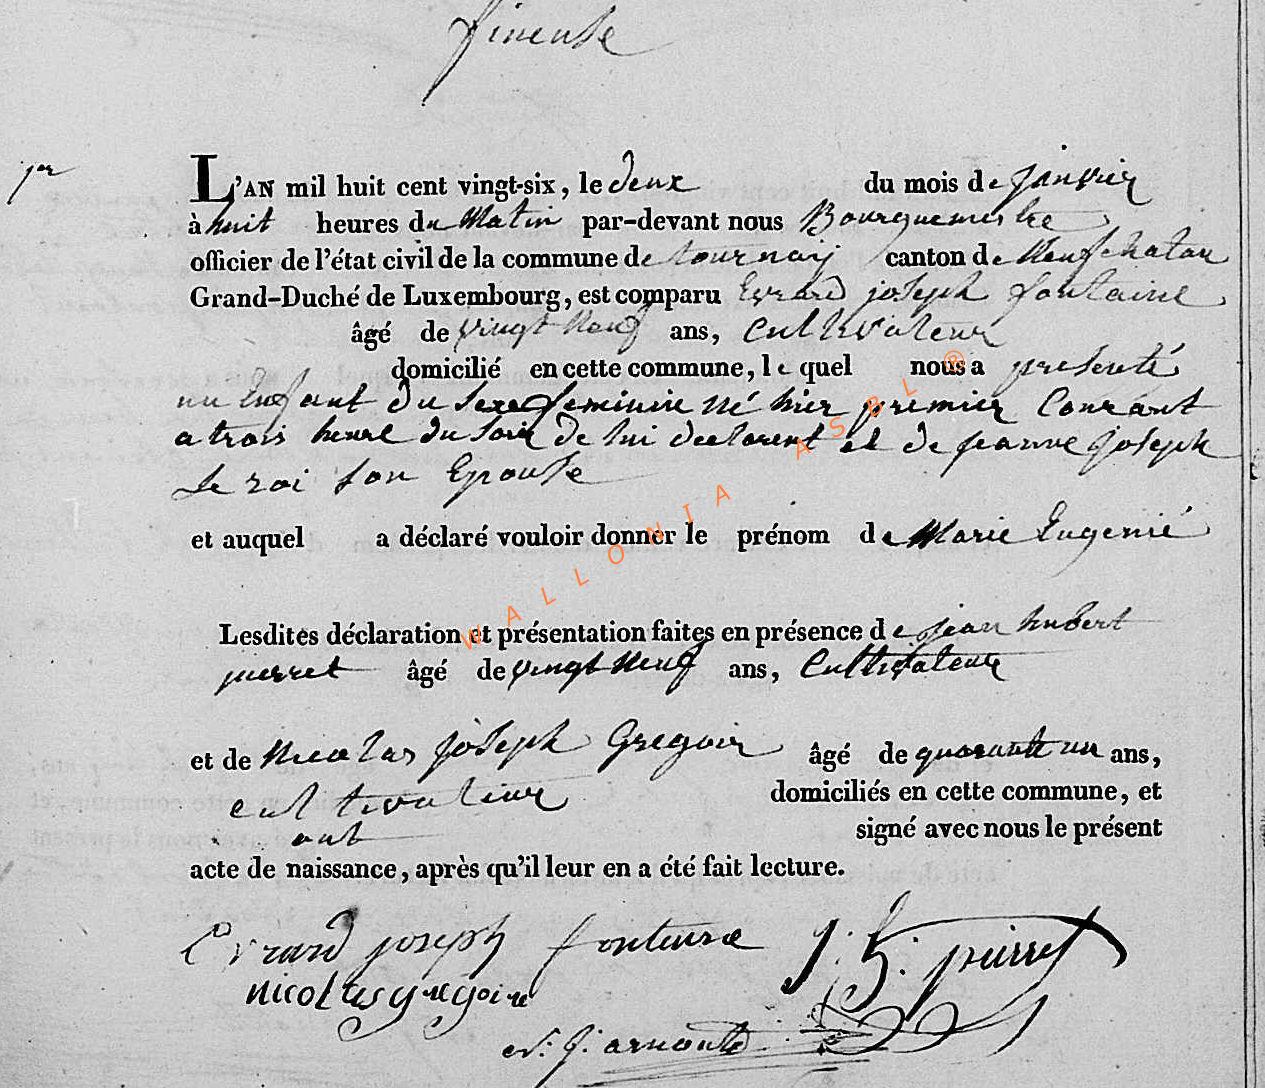 1er
L'AN mil huit cent vingt-six, le deux du mois de janvier
à huit heures du Matin par-devant nous Bourguemestre
officier de l'état civil de la commune de tournay canton de Neufchatau
Grand-Duché de Luxembourg, est comparu Evrard joseph fontaine
âgé de vingt Neuf ans, Cultivateur
domicilié en cette commune, le quel nous a presenté
un Enfant du Sexe feminin Né hier premier Courant
a trois heure du Soir de lui declarent et de jeanne joseph
Le roi son Epouse
et auquel a déclaré vouloir donner le prénom de Marie Eugenié
Lesdites déclaration et présentation faites en présence de jean hubert
pierret âgé de vingt Neuf ans, Cultivateur
et de Nicolas joseph Gregoir âgé de quarante un ans,
cultivateur domiciliés en cette commune, et
ont signé avec nous le présent
acte de naissance, après qu'il leur en a été fait lecture.
Evrard joseph j. h. pierret
nicolas gregoire
WALLONIA ASBL®